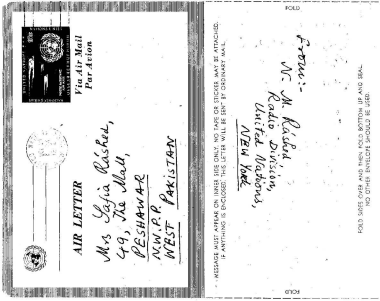 Via Air Mail
Par Avion
AIR LETTER
Mrs Safia Rashed,
49, The Mall,
PESHAWAR
N.W.F.P.
WEST PAKISTAN
FOLD
MESSAGE MUST APPEAR ON INNER SIDE ONLY, NO TAPE OR STICKER MAY BE ATTACHED.
IF ANYTHING IS ENCLOSED THIS LETTER WILL BE SENT BY ORDINARY MAIL.
From:-
N. M. Rashed,
Radio Division,
United Nations,
NEW YORK
FOLD SIDES OVER AND THEN FOLD BOTTOM UP AND SEAL.
NO OTHER ENVELOPE SHOULD BE USED.
FOLD